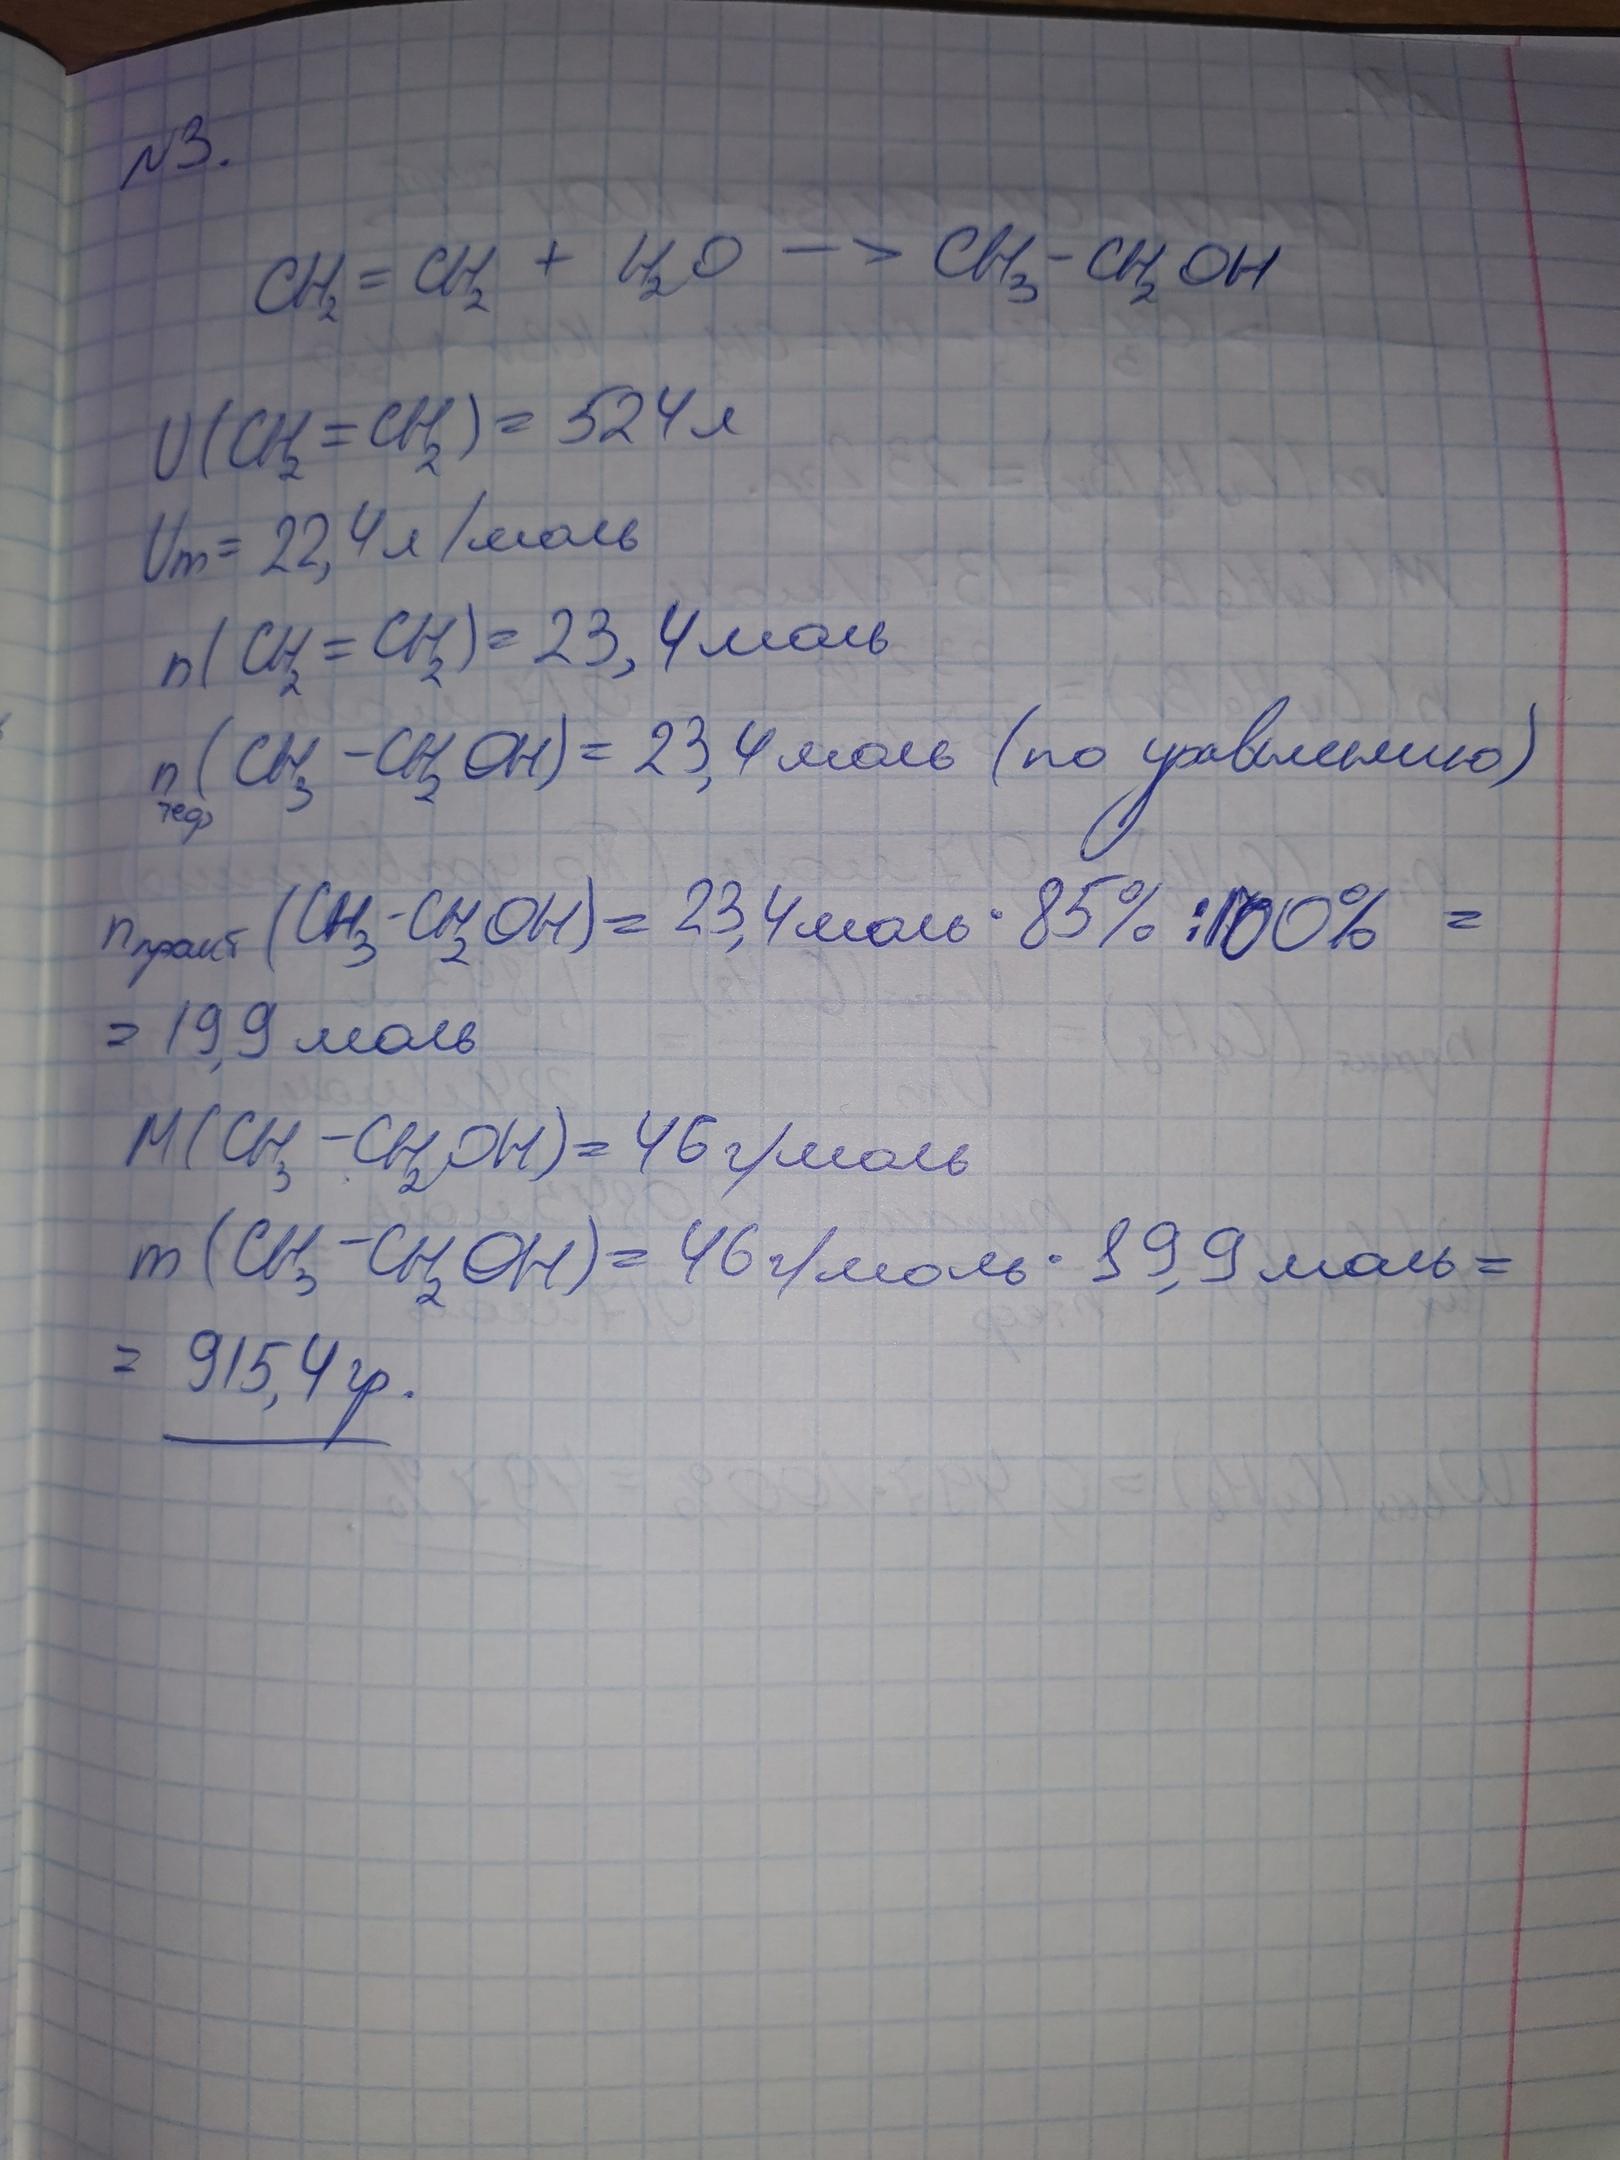 №3.
CH₂ = CH₂ + H₂O —> CH₃ - CH₂OH
U(CH₂ = CH₂) = 524 л
Um = 22,4 л/моль
n(CH₂ = CH₂) = 23,4 моль
n теор (CH₃ - CH₂OH) = 23,4 моль (по уравнению)
n практ (CH₃ - CH₂OH) = 23,4 моль · 85% : 100% =
= 19,9 моль
M(CH₃ - CH₂OH) = 46 г/моль
m(CH₃ - CH₂OH) = 46 г/моль · 19,9 моль =
= 915,4 гр.